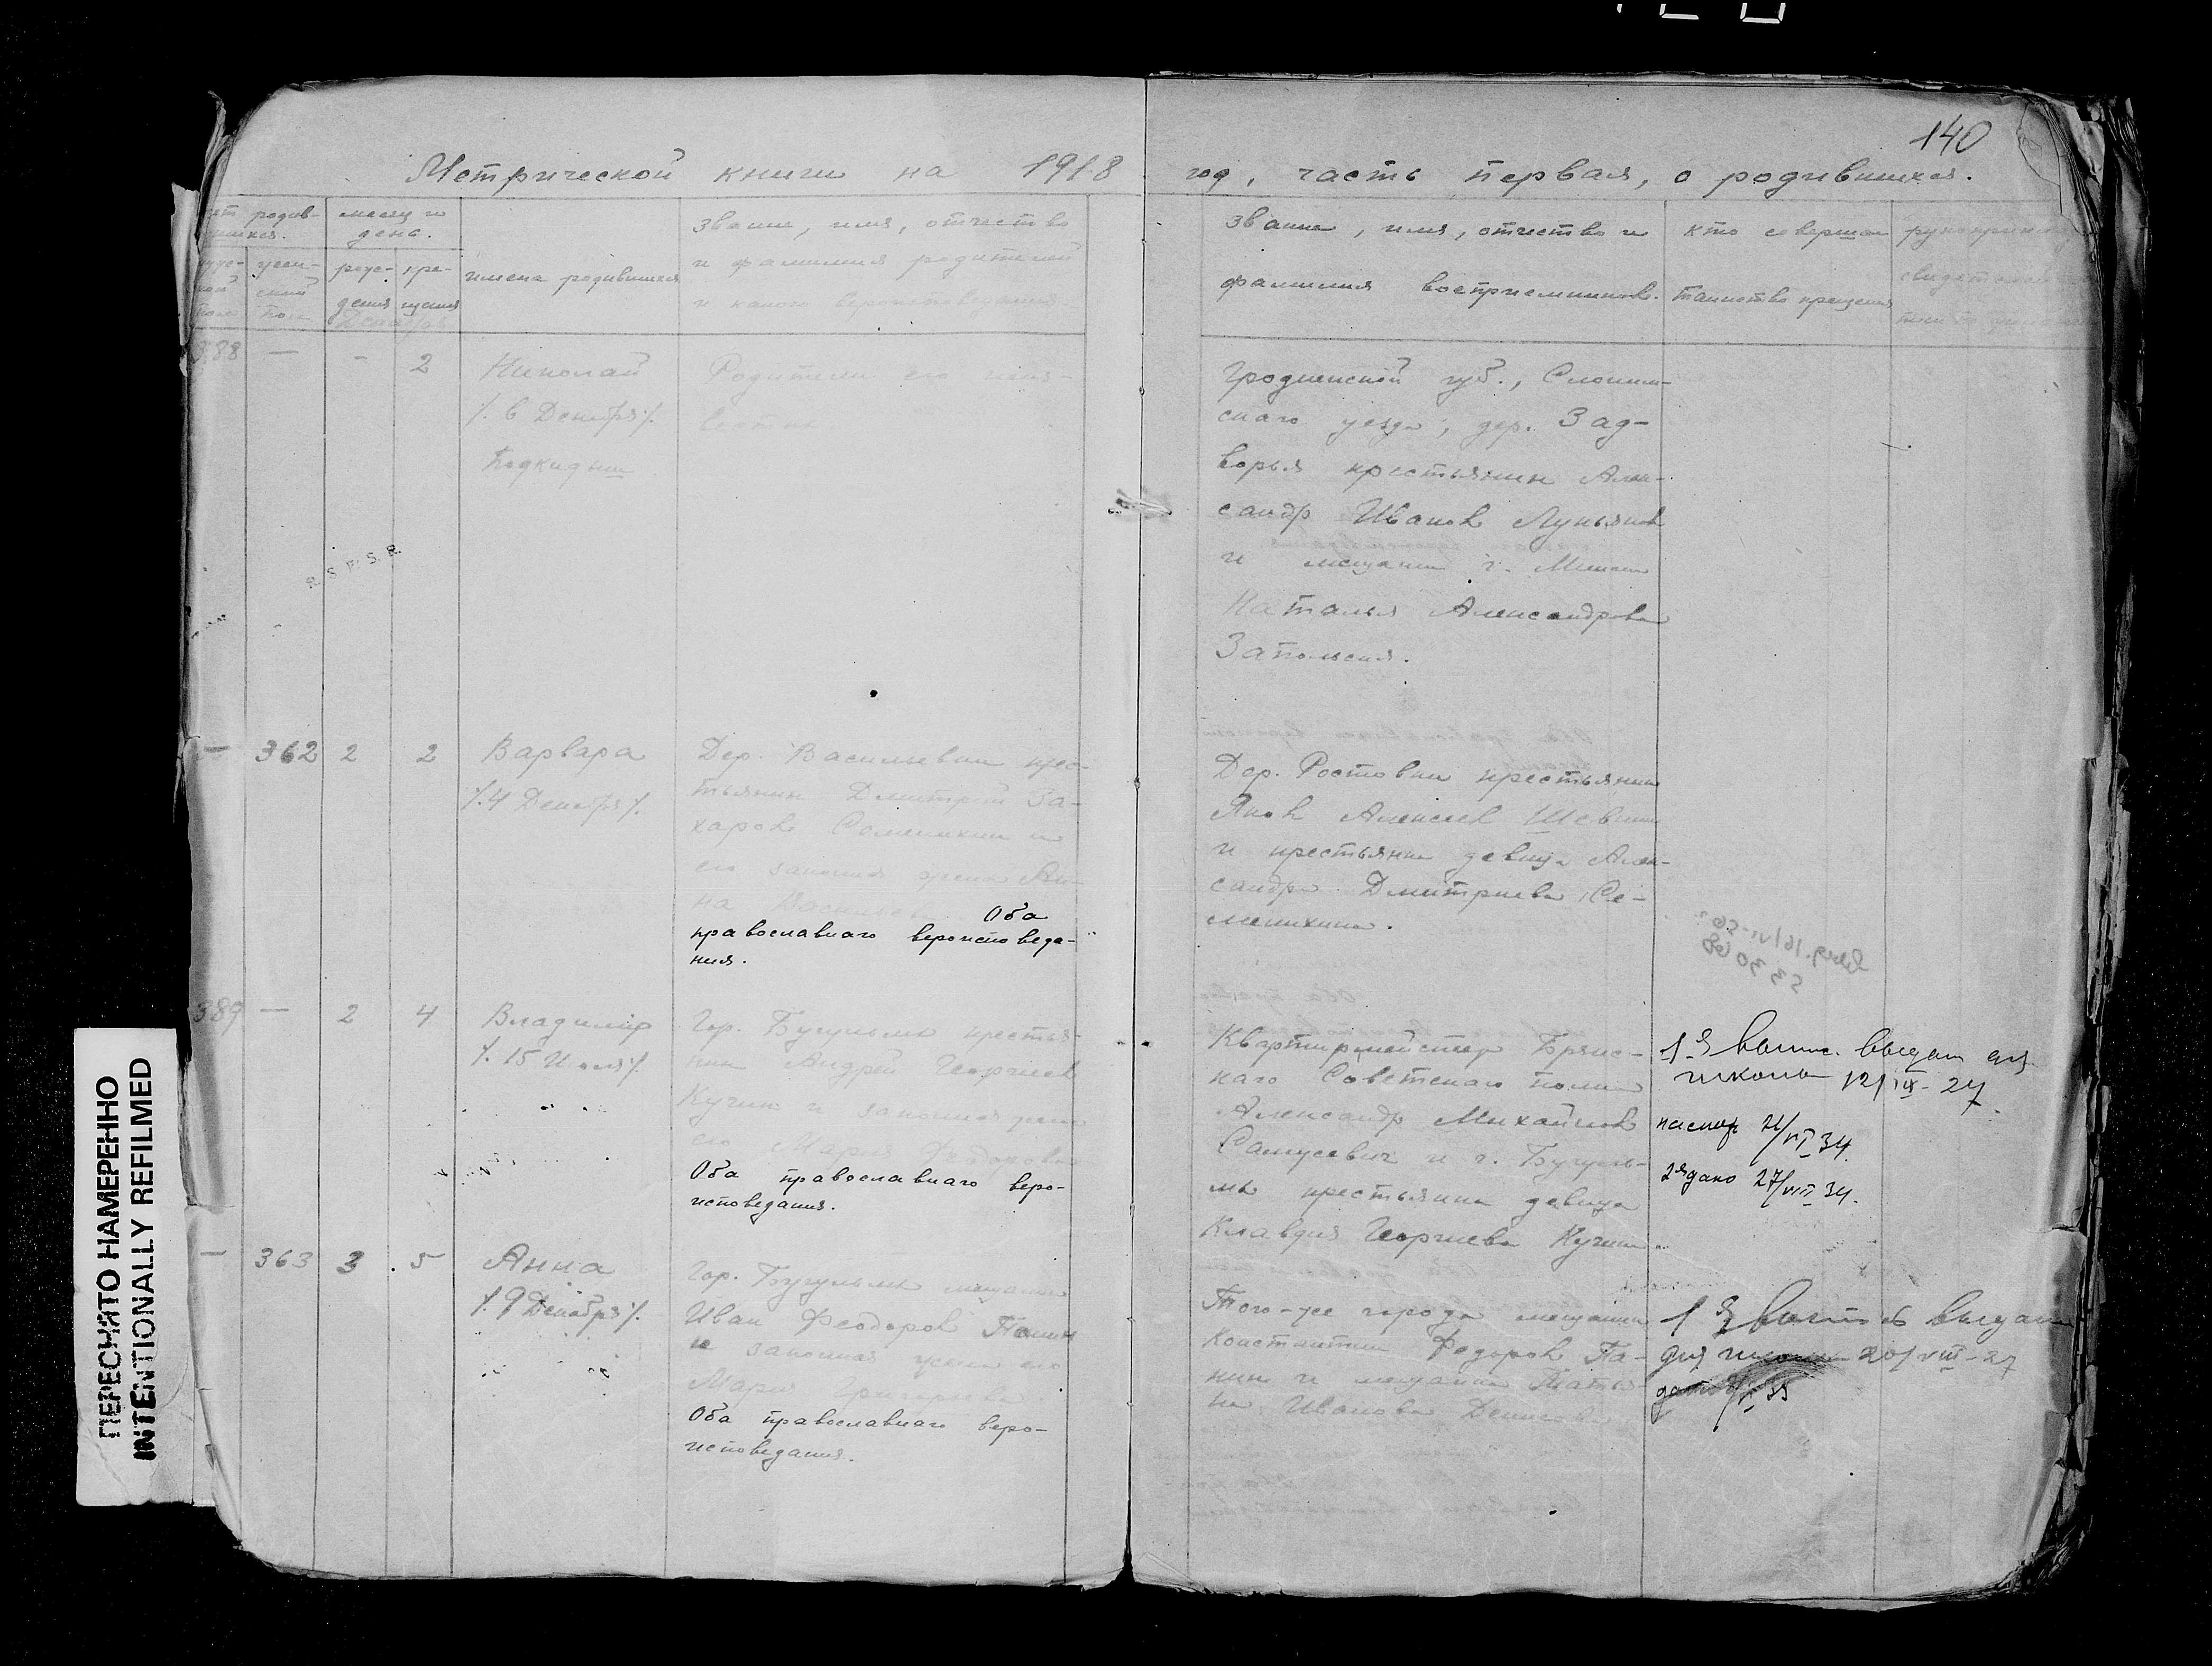 140
Метрической книги на 1918
год, часть первая, о родившихся.
родив-
шихся.
месяц и
день.
рож-
дения
кре-
щения
Декабрь
имена родившихся
звание, имя, отчество
и фамилия родителей
и какого вероисповедания
звание, имя, отчество и
фамилия восприемников.
кто совершал
таинство крещения
рукоприклад
свидетелей
388 — - 2
Николай
/. 6 Декабря /.
Подкидыш
Родители его неиз-
вестны
Гродненской губ., Слоним-
скаго уезда, дер. Зад-
ворья крестьянин Алек-
сандр Иванов Лукьянов
и мещанка г. Минска
Наталья Александрова
Запольская.
R. S. F. S. R.
— 362 2 2
Варвара
/. 4 Декабря /.
Дер. Васильевки крес-
тьянин Дмитрий За-
харов Семенихин и
его законная жена Ан-
на Оба
православнаго вероисповеда-
ния.
Дер. Ростовки крестьянин
Яков Алексеев Шевнин
и крестьянка девица Алек-
сандра Дмитриева Се-
менихина.
389 — 2 4
Владимир
/. 15 Июля /.
Гор. Бугульмы крестья-
нин Андрей Георгиев
Кучин и законная жена
его Мария Феодорова
Оба православнаго веро-
исповедания.
Квартирмейстер Брянс-
каго Советскаго полка
Александр Михайлов
Самусевич и г. Бугуль-
мы крестьянка девица
Клавдия Георгиева Кучина
1-я выпис. выдан для
школы 12/IX-27
паспор 21/VI 34.
2я дано 27/VIII 34.
— 363 3 5
Анна
/. 9 Декабря /.
Гор. Бугульмы мещанин
Иван Феодоров Панин
и законная жена его
Мария
Оба православнаго веро-
исповедания.
Того-же города мещанин
Константин Федоров Па-
нин и мещанка Татья-
на Иванова
1 я выпись выдан
для школы 20/VIII-27
ПЕРЕСНЯТО НАМЕРЕННО
INTENTIONALLY REFILMED